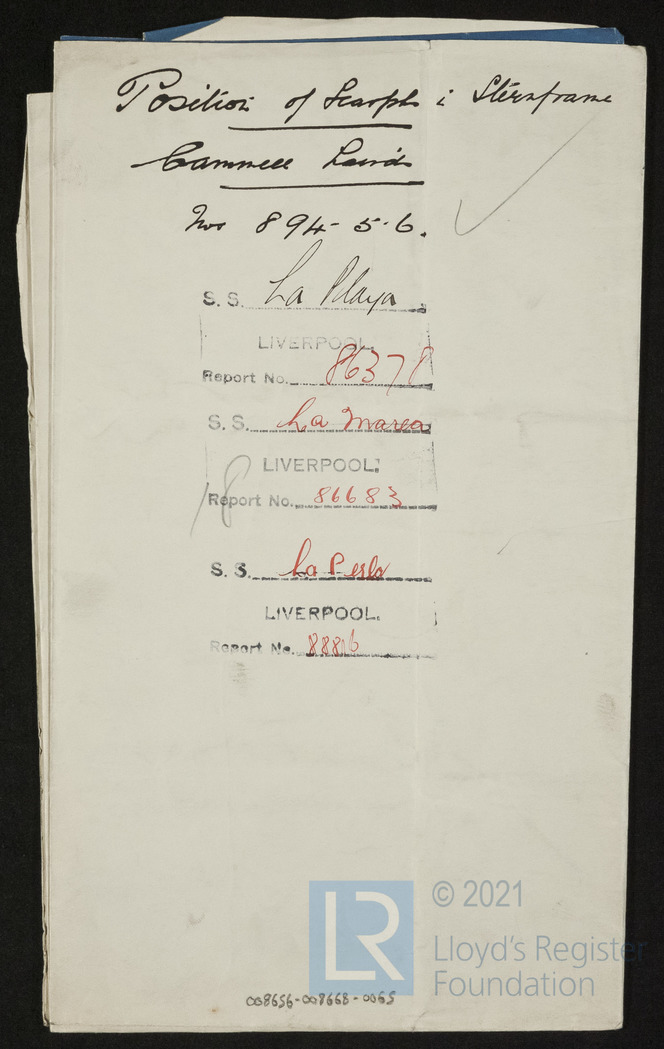 Position of Scarph i Sternframe
Cammell Laird
Nos 894-5-6.
S. S. La Playa
LIVERPOOL.
Report No. 86378
S. S. La Marea
LIVERPOOL.
18
Report No. 86683
S. S. La Perla
LIVERPOOL.
Report No. 88816
LR
© 2021
Lloyd's Register
Foundation
008656-008668-0065